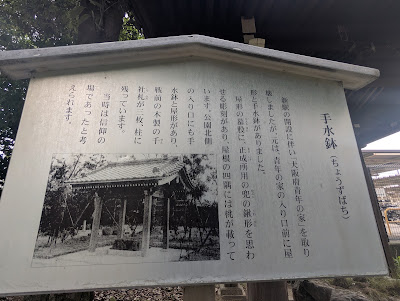 手水鉢（ちょうずばち）
新駅の開設に伴い「大阪府青年の家」を取り
壊しましたが、元は、青年の家の入り口前に屋
形と手水鉢がありました。
屋根の最下に、正成所用の兜の鍬形を思わ
せる彫刻があり、屋根の四隅には桃が載って
います。公園北側
の入り口にも手
水鉢と屋形があり、
戦前の木製の手
社札が二枚、柱に
残っています。
当時は信仰の
場であったと考
えられます。